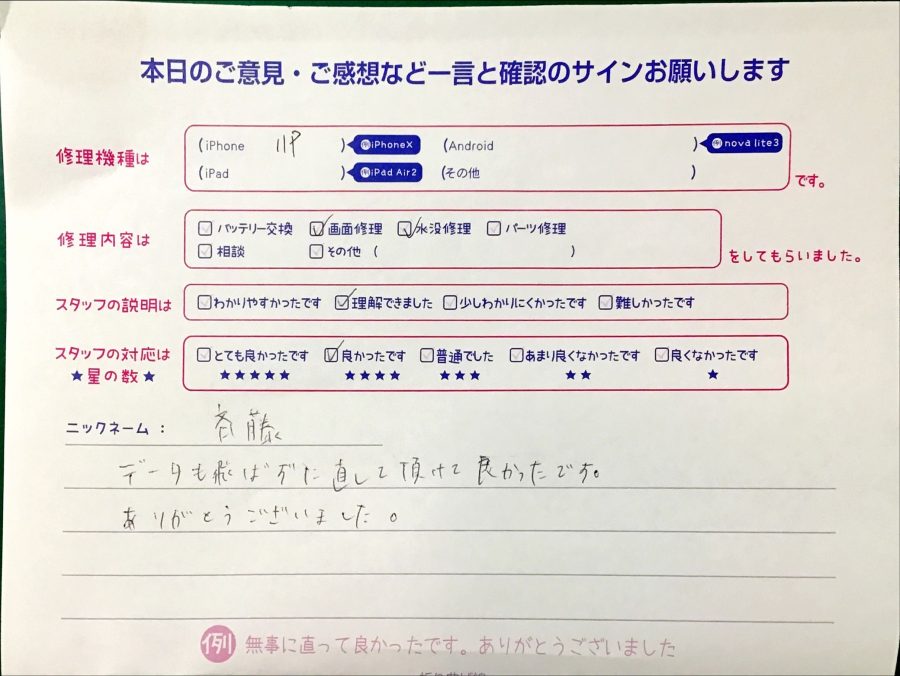 本日のご意見・ご感想など一言と確認のサインお願いします
修理機種は (iPhone 11P ) iPhoneX (Android ) nova lite3
(iPad ) iPad Air2 (その他 ) です。
修理内容は □バッテリー交換 ☑画面修理 ☑水没修理 □パーツ修理
□相談 □その他 ( ) をしてもらいました。
スタッフの説明は □わかりやすかったです ☑理解できました □少しわかりにくかったです □難しかったです
スタッフの対応は □とても良かったです ☑良かったです □普通でした □あまり良くなかったです □良くなかったです
★星の数★ ★★★★★ ★★★★ ★★★ ★★ ★
ニックネーム： 斉藤
データも飛ばずに直して頂けて良かったです。
ありがとうございました。
例 無事に直って良かったです。ありがとうございました